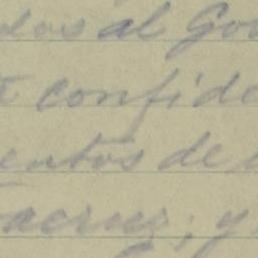 dos al Go
confide
entos de
acruz; y